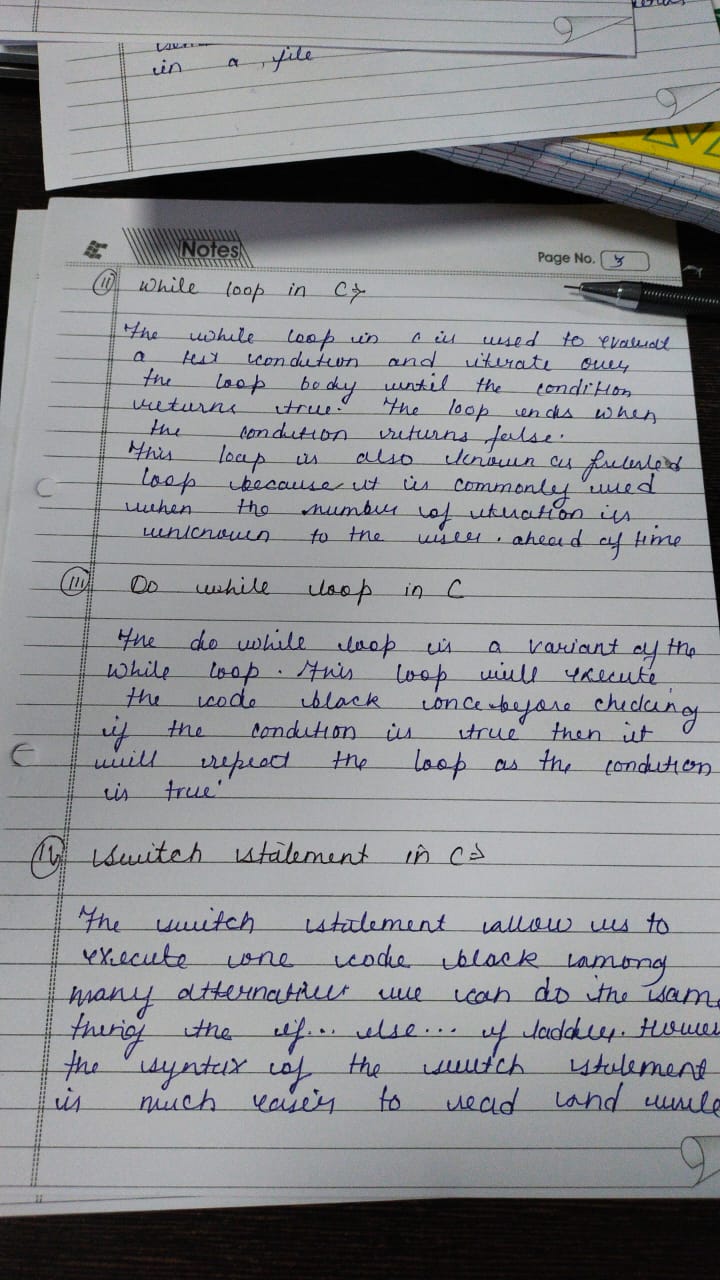 in a file
Notes
Page No.
(ii) While loop in C⇒
The while loop in c is used to evaluat
a test condition and iterate over
the loop body until the condition
returns true. The loop ends when
the condition returns false.
This loop is also known as
loop because it is commonly used
when the number of iteration is
unknown to the user. ahead of time
(iii) Do while loop in C
The do while loop is a variant of the
While loop. This loop will execute
the code block once before checking
if the condition is true then it
will repeat the loop as the condition
is true
(iv) Switch statement in C⇒
The switch statement allow us to
execute one code block among
many alternatives we can do the sam
thing the if... else... if ladder. Howev
the syntax of the switch statement
is much easier to read and write